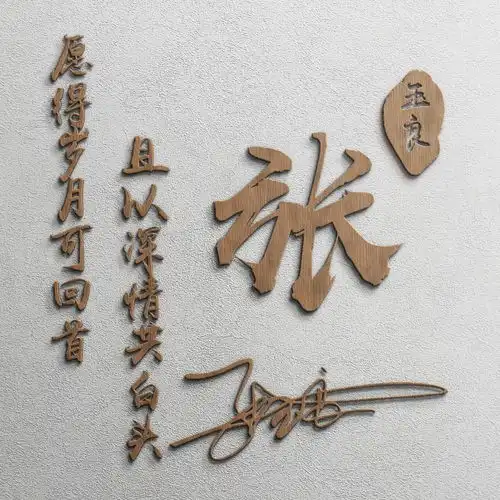 愿得岁月可回首
且以深情共白头
张
玉良